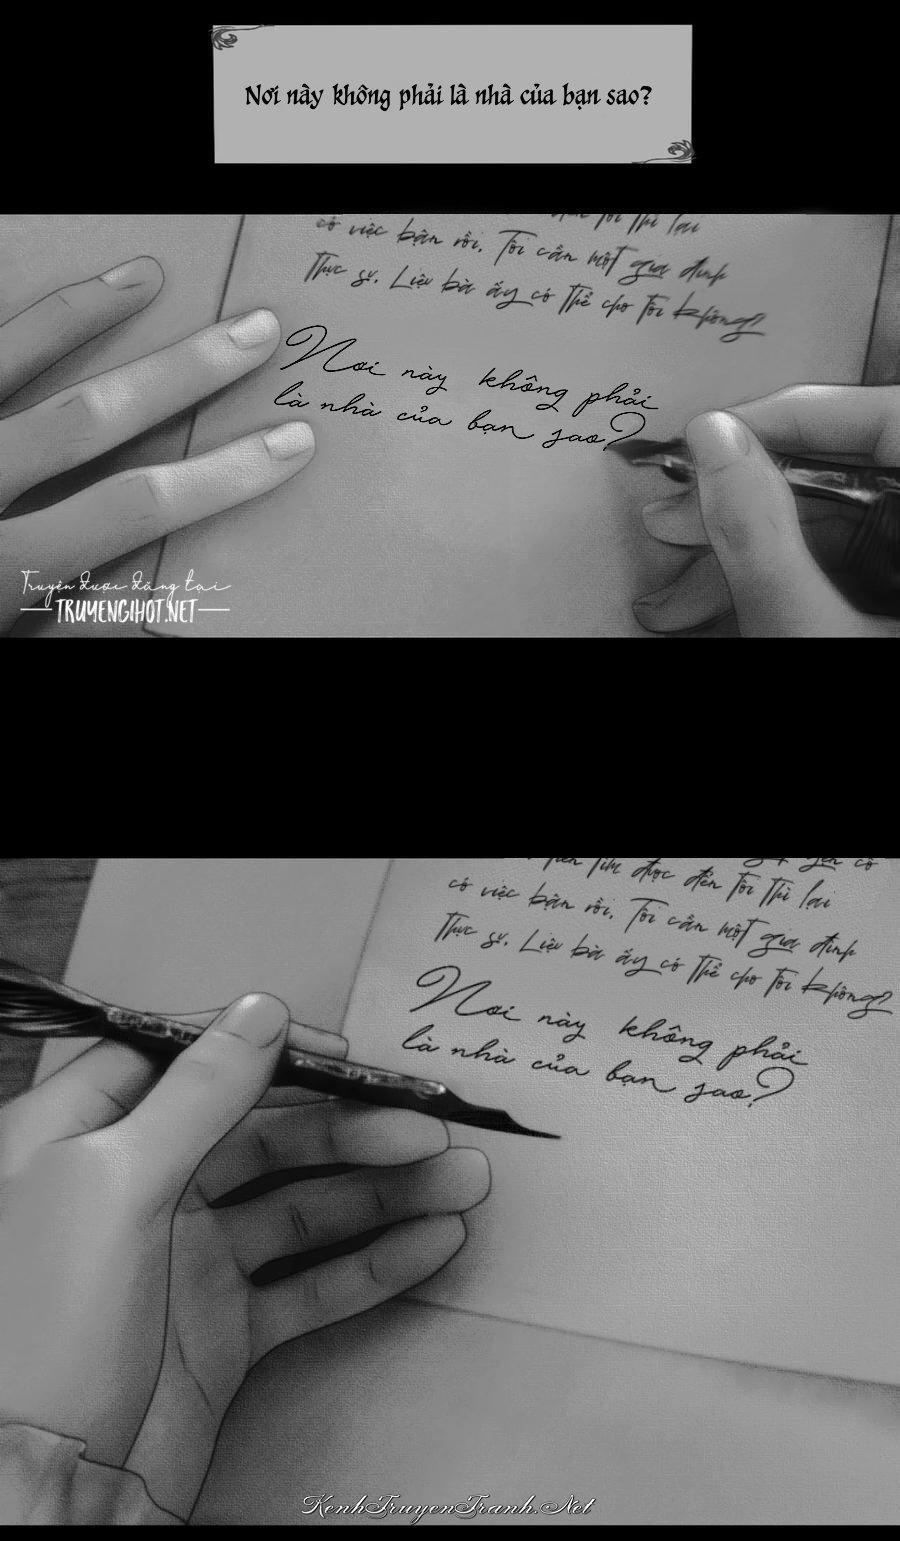 Nơi này không phải là nhà của bạn sao?
đến tôi thì lại
có việc bận rồi. Tôi cần một gia đình
thực sự. Liệu bà ấy có thể cho tôi không?
Nơi này không phải
là nhà của bạn sao?
Truyện được đăng tại
TRUYENGIHOT.NET
tìm được đến tôi thì lại
có việc bận rồi. Tôi cần một gia đình
thực sự. Liệu bà ấy có thể cho tôi không?
Nơi này không phải
là nhà của bạn sao?
KenhTruyenTranh.Net